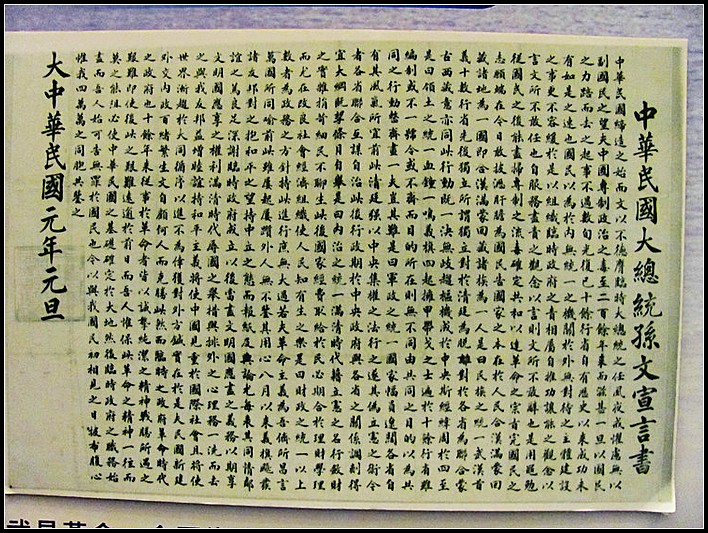 中華民國大總統孫文宣言書
中華民國締造之始而文以不德膺臨時大總統之任夙夜戒懼慮無以
副國民之望夫中國專制政治之毒至二百餘年來而滋甚一旦以國民
之力踣而去之起事不過數旬光復已十餘行省自有歷史以來成功未
有如是之速也國民以為於內無統一之機關於外無對待之主體建設
之事更不容緩於是以組織臨時政府之責相屬自推功讓能之觀念以
言文所不敢任也自服務盡責之觀念以言則文所不敢辭也是用黽勉
從國民之後能盡掃專制之流毒確定共和以達革命之宗旨完國民之
志願端在今日敢披瀝肝膽為國民告國家之本在於人民合漢滿蒙回
藏諸地為一國即合漢滿蒙回藏諸族為一人是曰民族之統一武漢首
義十數行省先後獨立所謂獨立對於清廷為脫離對於各省為聯合蒙
古西藏意亦同此行動既一決無歧趨樞機成於中央斯經緯周於四至
是曰領土之統一血鐘一鳴義旗四起擁甲帶戈之士遍於十餘行省雖
編制或不一號令或不齊而目的所在則無不同由共同之目的以為共
同之行動整齊畫一夫豈其難是曰軍政之統一國家幅員遼闊各省自
有其風氣所宜前此清廷強以中央集權之法行之遂其偽立憲之術今
者各省聯合互謀自治此後行政期於中央政府與各省之關係調劑得
宜大綱既挈條目自舉是曰內治之統一滿清時代藉立憲之名行斂財
之實雜捐苛細民不聊生此後國家經費取給於民必期合於理財學理
而尤在改良社會經濟組織使人民知有生之樂是曰財政之統一以上
數者為政務之方針持此進行庶無大過若夫革命主義為吾儕所昌言
萬國所同喻前此雖屢起屢躓外人無不鑒其用心八月以來義旗飈發
諸友邦對之抱和平之望持中立之態而報紙及輿論尤每表其同情鄰
誼之篤良足深謝臨時政府成立以後當盡文明國應盡之義務以期享
文明國應享之權利滿清時代辱國之舉措與排外之心理務一洗而去
之與我友邦益增睦誼持和平主義將使中國見重於國際社會且將使
世界漸趨於大同循序以進不為倖獲對外方針實在於是夫民國新建
外交內政百緒繁生文自顧何人而克勝此然而臨時之政府革命時代
之政府也十餘年來從事於革命者皆以誠摯純潔之精神戰勝所遇之
艱難即使後此之艱難遠逾於前日而吾人惟保此革命之精神一往而
莫之能阻必使中華民國之基礎確定於大地然後臨時政府之職務始
盡而吾人始可告無罪於國民也今以與我國民初相見之日披布腹心
惟我四萬萬之同胞共鑒之
大中華民國元年元旦